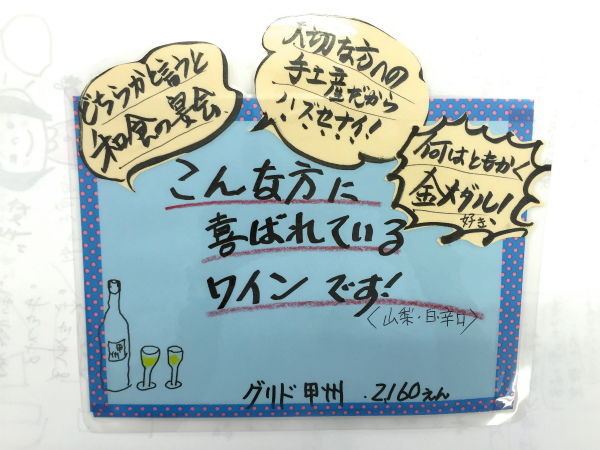 どちらかと言うと
和食の宴会
大切な方への
手土産だから
ハズセナイ!
何はともかく
金メダル!
好き、
こんな方に
喜ばれている
ワインです!
〈山梨・白・辛口〉
甲州
グリド甲州 .2,160えん